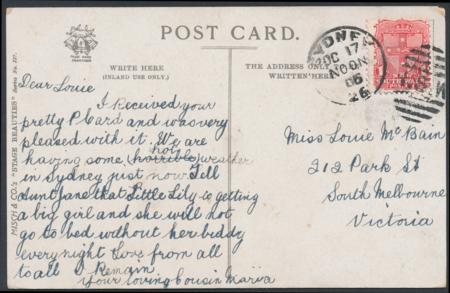 POST CARD.
WRITE HERE
(INLAND USE ONLY,)
THE ADDRESS ONLY
WRITTEN HERE
MISCH & CO.'S "STAGE BEAUTIES"
SYDNEY
DC 17
NOON
06
26
Dear Louie
I Received your
pretty P Card and was very
pleased with it. We are
having some hot (horrible) weather
in Sydney just now. Tell
Aunt Jane that Little Lily is getting
a big girl and she will not
go to bed without her biddy
every night Love from all
to all I Remain
Your loving Cousin Maria
Miss Louie McBain
212 Park St
South Melbourne
Victoria